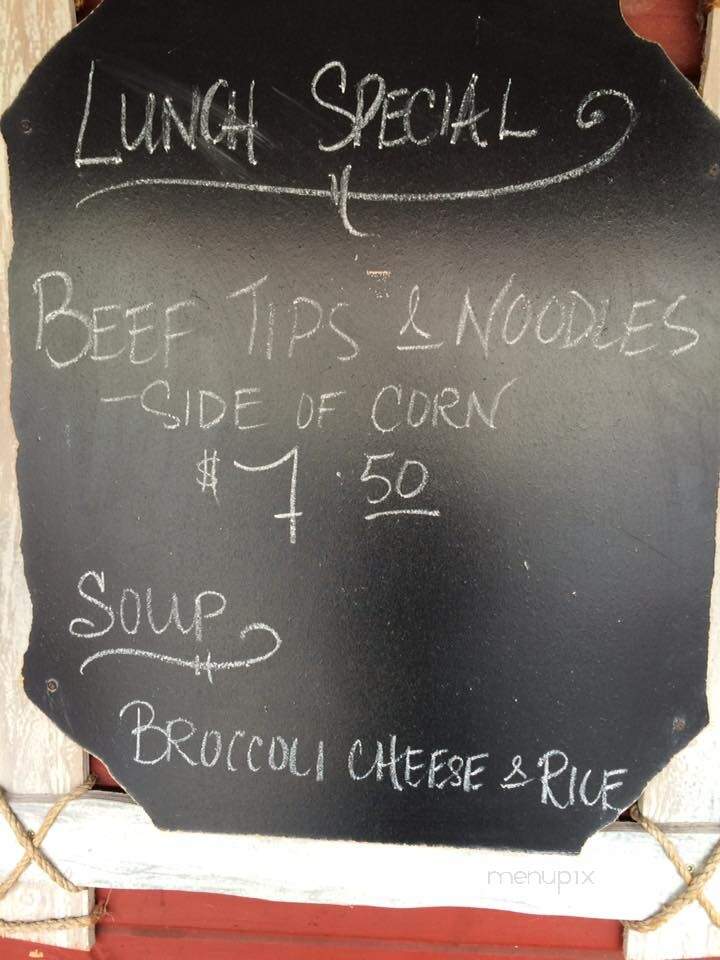 LUNCH SPECIAL
BEEF TIPS & NOODLES
- SIDE OF CORN
$7.50
SOUP
BROCCOLI CHEESE & RICE
menupix